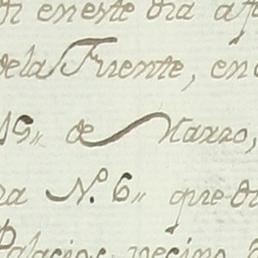 di en este dia a fi
de la Fuente, en
15,, de Marzo,
ra N.º 6,, que di
Palacios, vecino